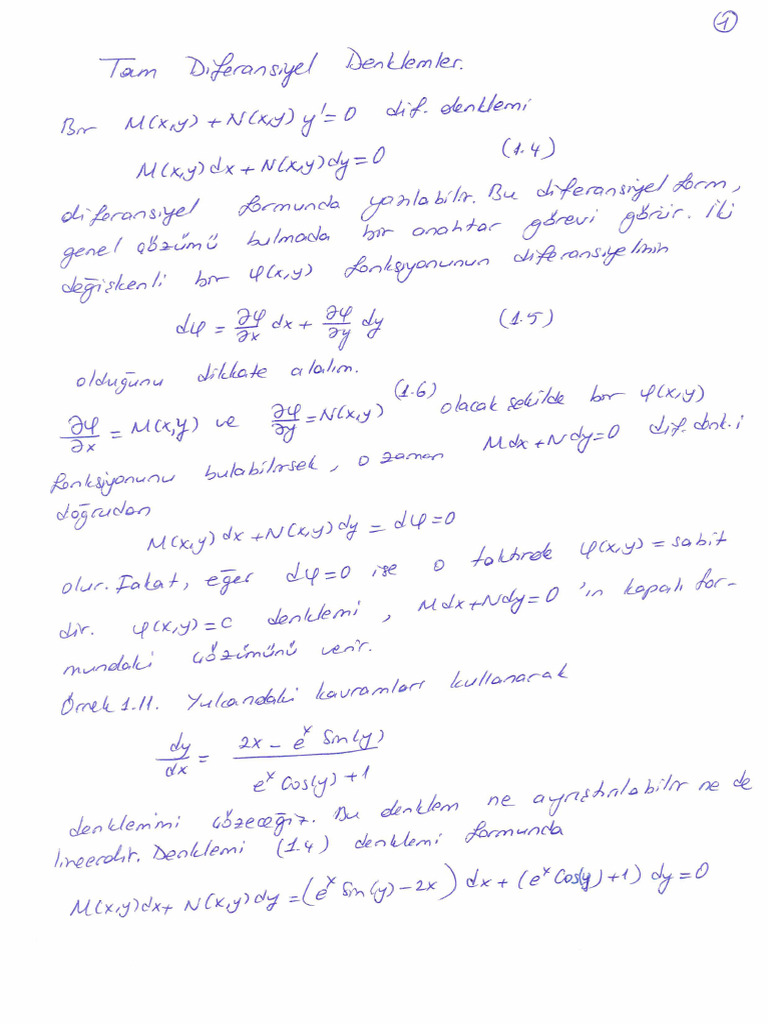 1
Tam Diferansiyel Denklemler.
Bir M(x,y) + N(x,y) y' = 0 dif. denklemi
M(x,y) dx + N(x,y) dy = 0 (1.4)
diferansiyel formunda yazılabilir. Bu diferansiyel form,
genel çözümü bulmada bir anahtar görevi görür. İki
değişkenli bir φ(x,y) fonksiyonunun diferansiyelinin
dφ = ∂φ/∂x dx + ∂φ/∂y dy (1.5)
olduğunu dikkate alalım.
∂φ/∂x = M(x,y) ve ∂φ/∂y = N(x,y) (1.6) olacak şekilde bir φ(x,y)
fonksiyonunu bulabilirsek, o zaman Mdx + Ndy = 0 dif. denk.i
doğrudan
M(x,y) dx + N(x,y) dy = dφ = 0
olur. Fakat, eğer dφ = 0 ise o taktirde φ(x,y) = sabit
dir. φ(x,y) = c denklemi, Mdx + Ndy = 0 'ın kapalı for-
mundaki çözümünü verir.
Örnek 1.11. Yukarıdaki kavramları kullanarak
dy/dx = (2x - e^x Sin(y)) / (e^x Cos(y) + 1)
denklemini çözeceğiz. Bu denklem ne ayrıştırılabilir ne de
lineerdir. Denklemi (1.4) denklemi formunda
M(x,y)dx + N(x,y)dy = (e^x Sin(y) - 2x) dx + (e^x Cos(y) + 1) dy = 0